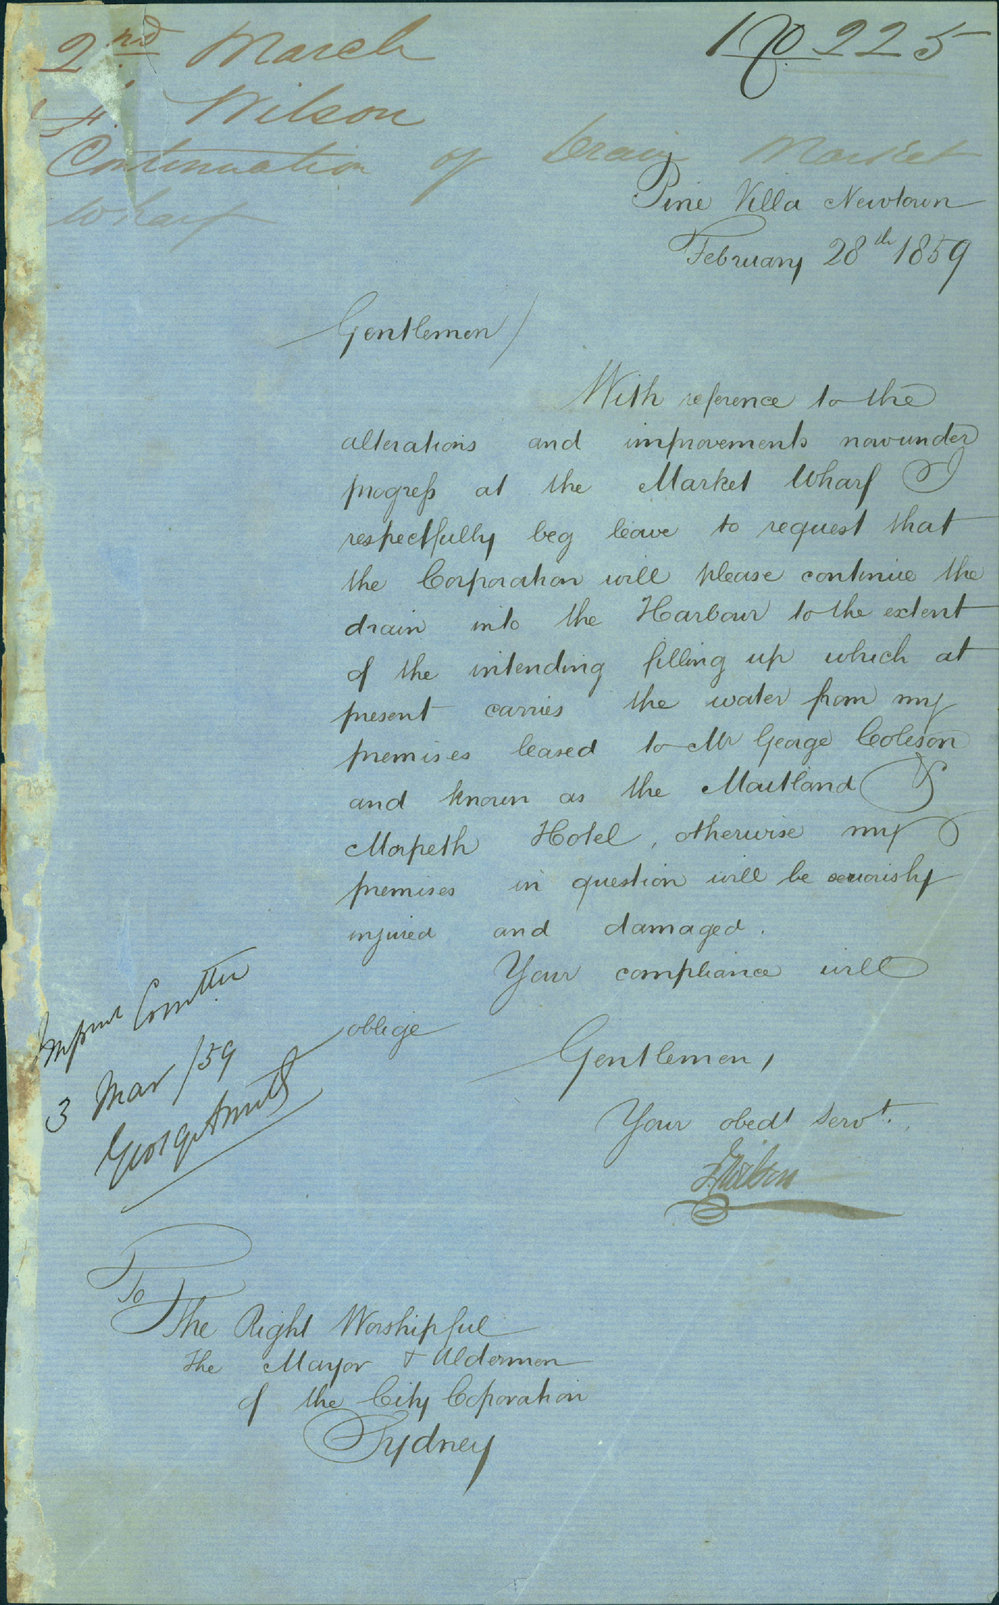 No 225
2nd March
Wilson
Continuation of Drain Market
Wharf
Pine Villa Newtown
February 28th 1859
Gentlemen/
With reference to the
alterations and improvements now under
progress at the Market Wharf I
respectfully beg leave to request that
the Corporation will please continue the
drain into the Harbour to the extent
of the intending filling up which at
present carries the water from my
premises leased to Mr George Coleson
and known as the Maitland &
Morpeth Hotel, otherwise my
premises in question will be seriously
injured and damaged.
Your compliance will
oblige
Gentlemen,
Your obedt Servt.
Wilson
Improvt Comttee
3 Mar /59
George Smith
To
The Right Worshipful
The Mayor & Aldermen
of the City Coporation
Sydney